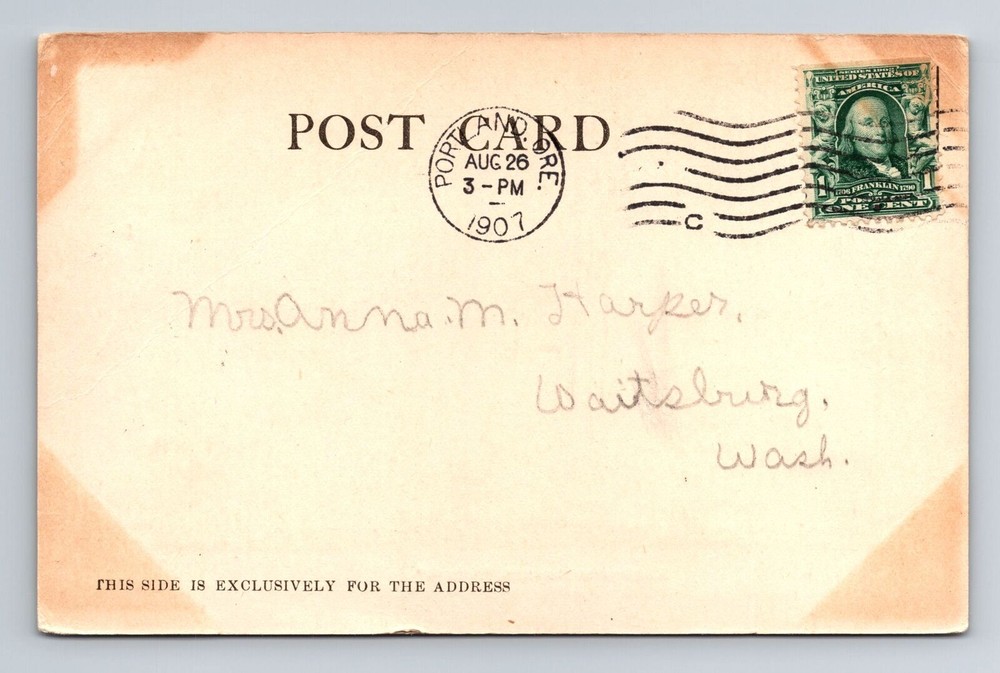 POST CARD
PORTLAND, ORE.
AUG 26
3-PM
1907
C
SERIES 1902
UNITED STATES OF
AMERICA
1706 FRANKLIN 1790
1 POSTAGE 1
ONE CENT
Mrs. Anna M. Harper,
Waitsburg,
Wash.
THIS SIDE IS EXCLUSIVELY FOR THE ADDRESS